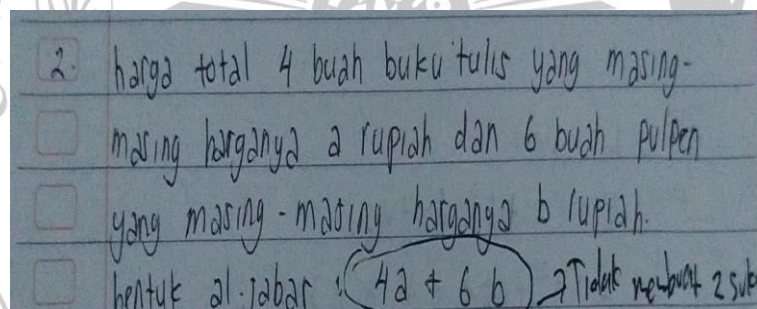 2. harga total 4 buah buku tulis yang masing-
masing harganya a rupiah dan 6 buah pulpen
yang masing-masing harganya b rupiah.
bentuk al-jabar : 4a + 6b → Tidak membuat 2 suk